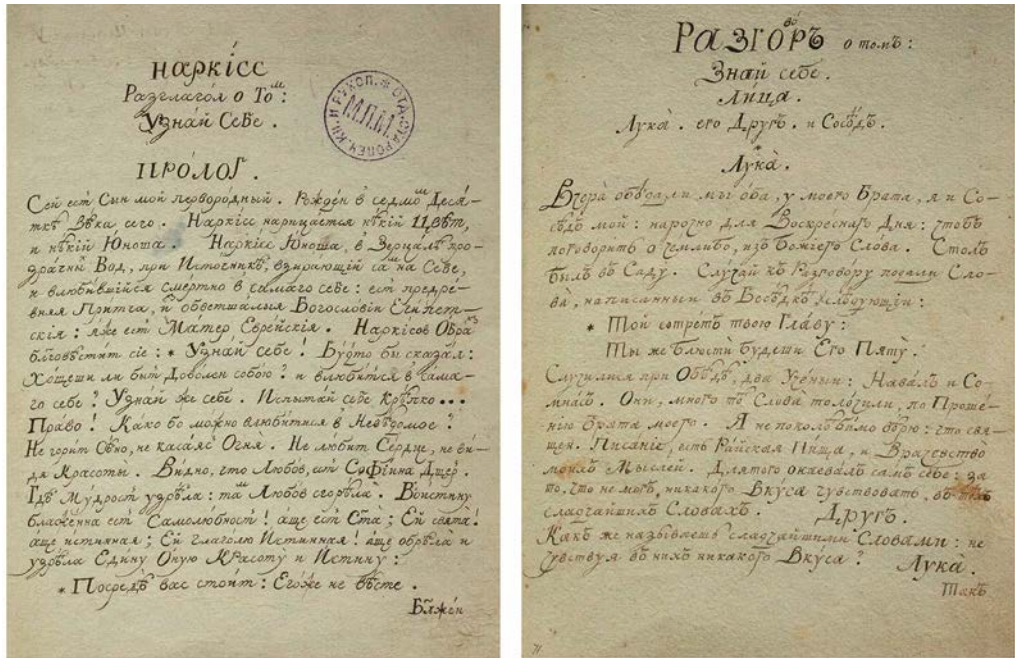 наркісс
Разглагол о Том:
Узнай Себе.
ПРОЛОГ.
Сей ест Сын мой первородный. Рожден в седмом Деся-
ткѣ Вѣка сего. Наркісс нарицается нѣкій Цвѣт,
и нѣкій Юноша. Наркісс Юноша, в Зерцалѣ про-
зрачных Вод, при Источникѣ, взирающій сам на Себе,
и влюбившійся смертно в самаго себе: ест предре-
вняя Притча, из обветшалыя Богословіи Египет-
скія: яже ест Матер Еврейскія. Наркісов Образ
благовѣстит сіе: * Узнай себе! Будто бы сказал:
Хощеши ли быт Доволен собою? и влюбится в сама-
го себе? Узнай же себе. Испытай себе крѣпко...
Право! Како бо можно влюбитися в Невѣдомое?
Не горит Сѣно, не касаяс Огня. Не любит Сердце, не ви-
дя Красоты. Видно, что Любов, ест Софіина Дщер.
Гдѣ Мудрост узрѣла: там Любов сгорѣла. Воистину
блаженна ест Самолюбност! аще ест Свята; Ей свята!
аще истинная; Ей глаголю Истинная! аще обрѣла и
узрѣла Едину Оную Красоту и Истину:
* Посредѣ вас стоит: Егоже не вѣсте.
Блжен
М.П.М.
ОТД. СТАРОПЕЧ. КН. И РУКОП.
РАЗГОвоРЪ о томъ:
Знай себе.
Лица.
Лука. его Другъ. и Сосѣдъ.
Лука.
Вчера обѣдали мы оба, у моего Брата, я и Со-
сѣдъ мой: нарочно для Воскреснаго Дня: чтобъ
поговорить о чемлибо, изъ Божіего Слова. Столъ
былъ въ Саду. Случай къ Разговору подали Сло-
ва, написанныи въ Бесѣдкѣ слѣдующіи:
* Той сотретъ твою Главу:
Ты же блюсти будеши Его Пяту.
Случилися при Обѣдѣ, два Ученыи: Навалъ и Со-
мнасъ. Они, много тѣ Слова толочили, по Прошé-
нію Брата моего. Я непоколѣбимо вѣрю: что свя-
щен. Писаніе, есть Райская Пища, и Врачевство
моихъ Мыслей. Длятого окаевалъ самъ себе: за
то, что не могъ, никакого Вкуса чувствовать, въ тѣхъ
сладчайшихъ Словахъ. Другъ.
Какъ же называешь сладчайшими Словами: не
чувствуя въ нихъ никакого Вкуса? Лука.
Такъ